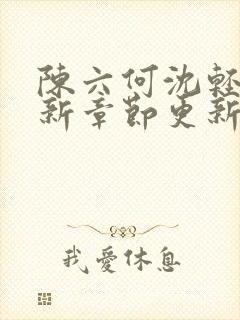 陳六何沈輕
新章節更新
我愛休息